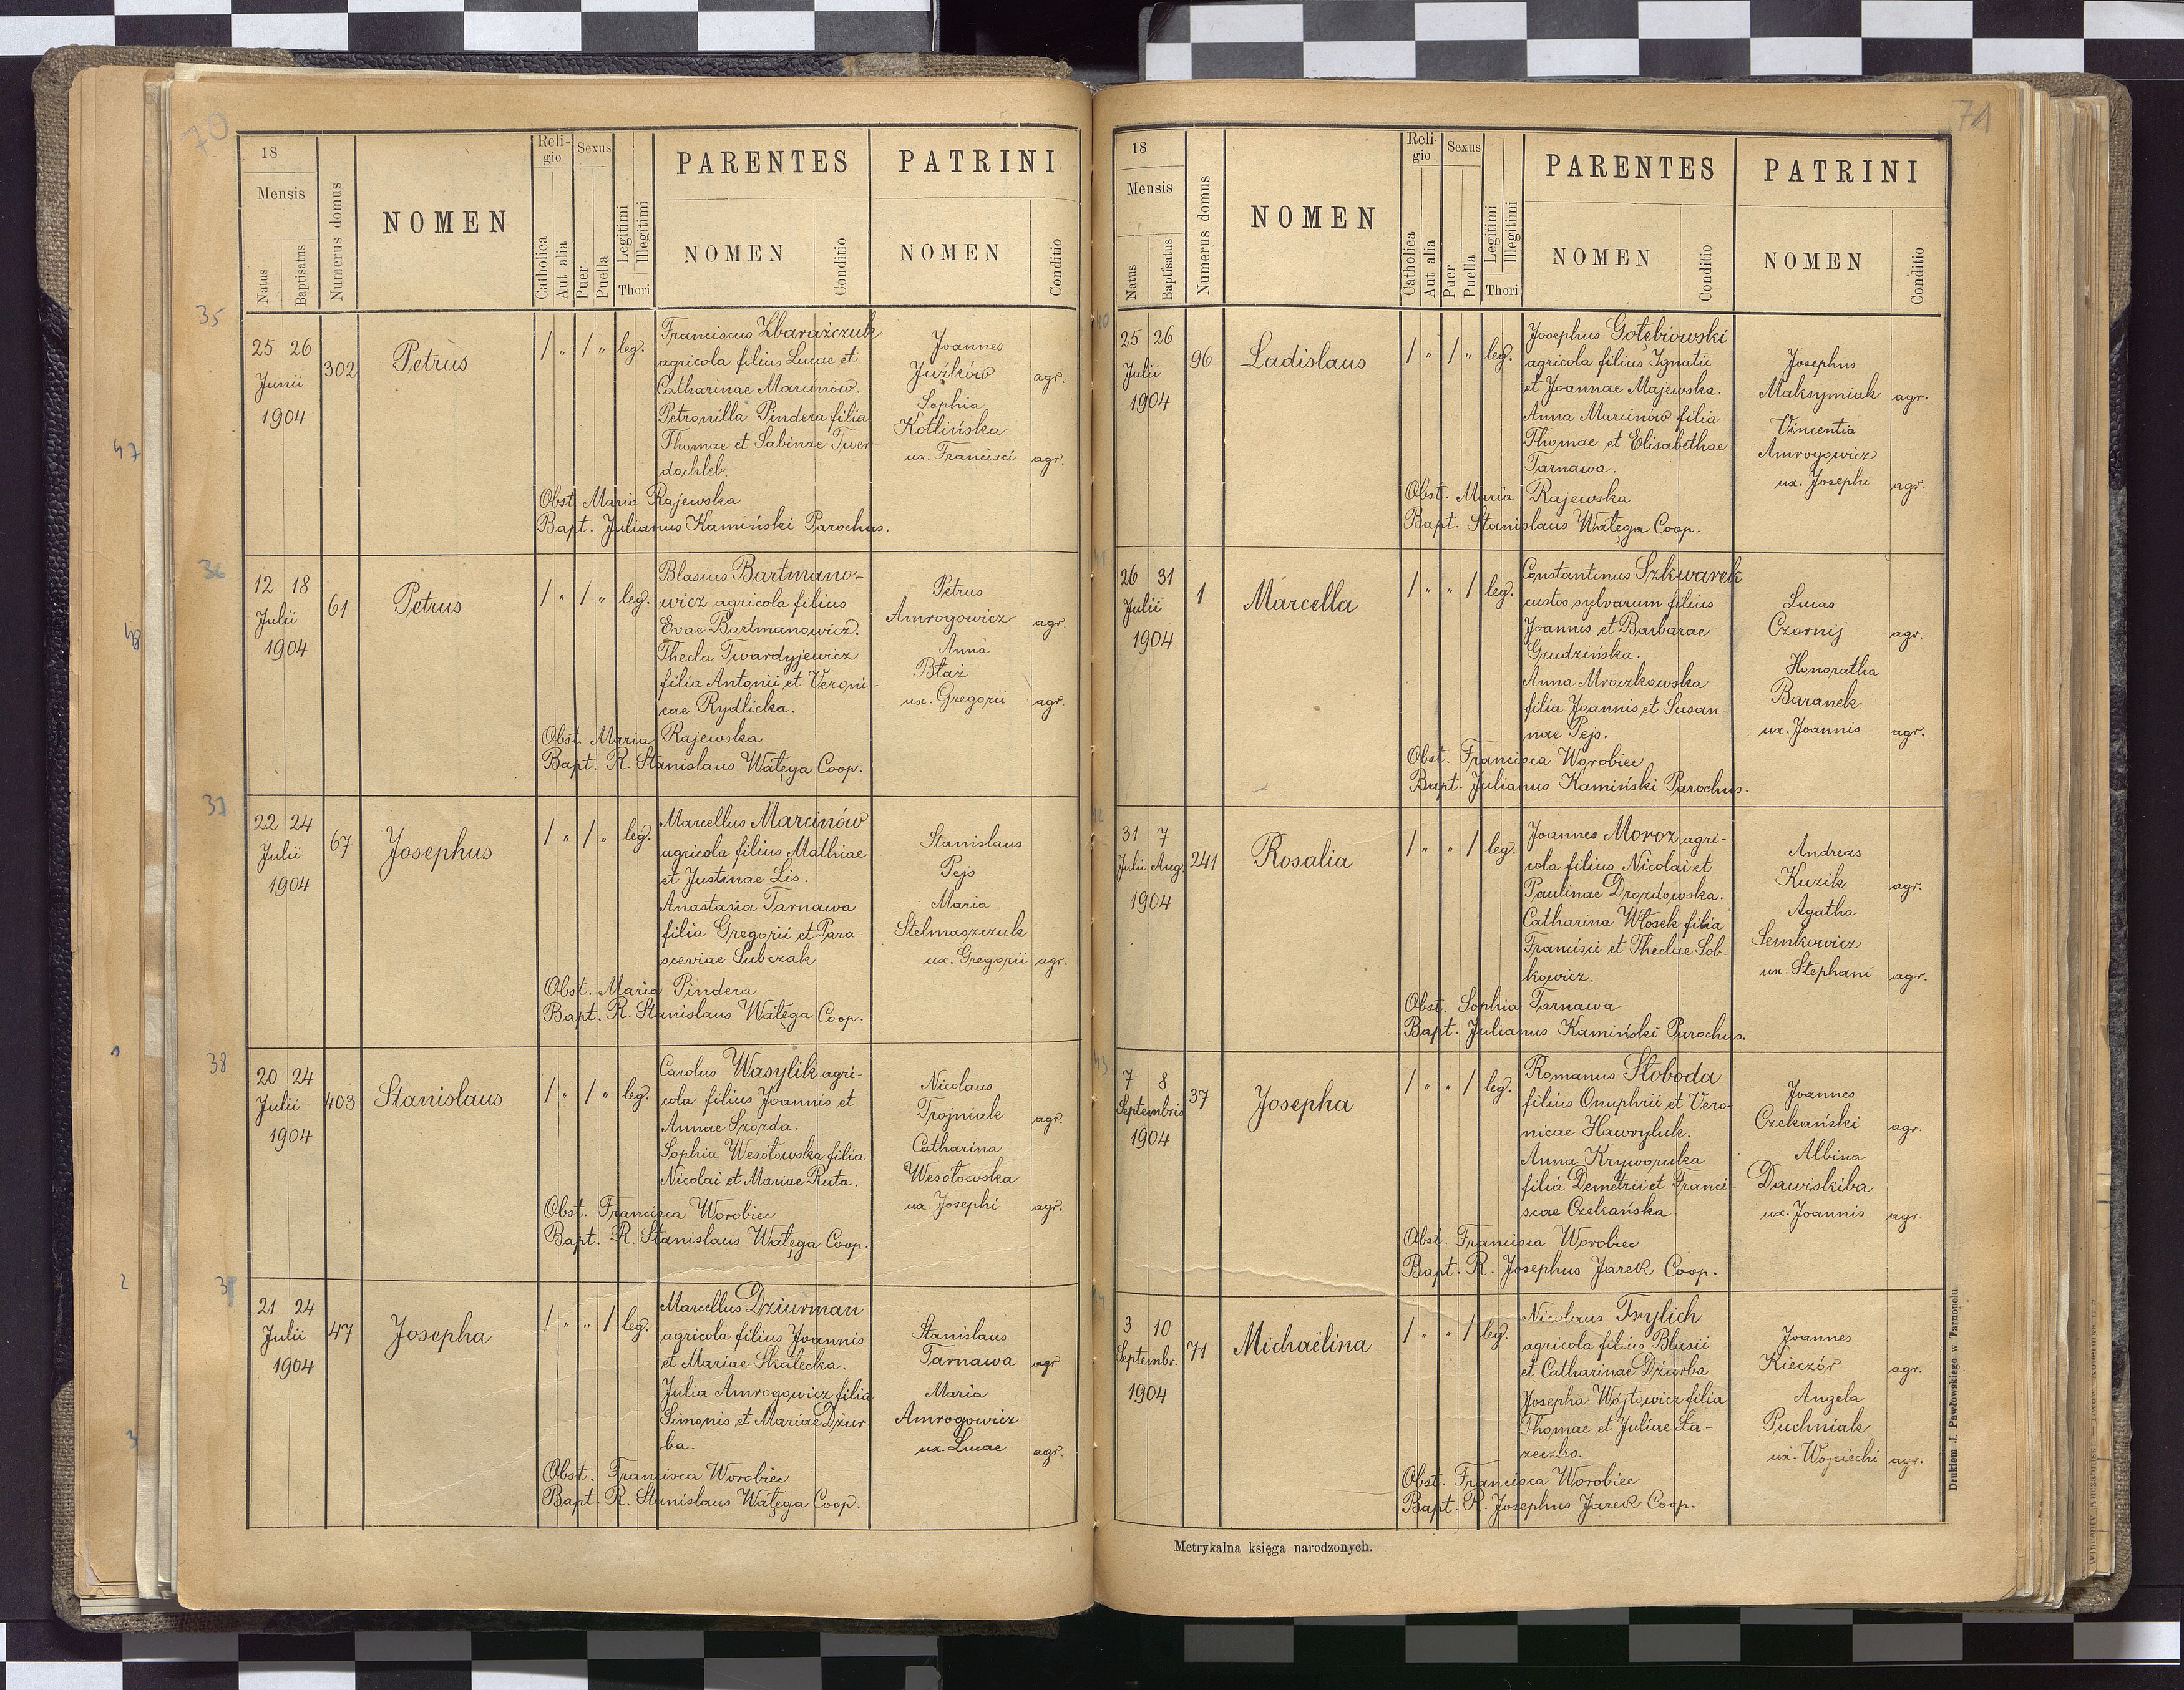 70
18
Mensis
Natus
Baptisatus
Numerus domus
NOMEN
Religio
Catholica
Aut alia
Sexus
Puer
Puella
Legitimi
Illegitimi
Thori
PARENTES
NOMEN
Conditio
PATRINI
NOMEN
Conditio
35
25 26
Junii
1904
302
Petrus
/ „ / „ leg.
Franciscus Zbarażczuk
agricola filius Lucae et
Catharinae Marcinów.
Petronilla Pindera filia
Thomae et Sabinae Twer-
dochleb.
Joannes
Juźków agr.
Sophia
Kotlińska
ux. Francisci agr.
Obst. Maria Rajewska
Bapt. Julianus Kamiński Parochus.
36
12 18
Julii
1904
61
Petrus
/ „ / „ leg.
Blasius Bartmano-
wicz agricola filius
Evae Bartmanowicz.
Thecla Twardyjewicz
filia Antonii et Veroni-
cae Rydlicka.
Petrus
Amrogowicz agr.
Anna
Błaż
ux. Gregorii agr.
Obst. Maria Rajewska
Bapt. R. Stanislaus Wałęga Coop.
37
22 24
Julii
1904
67
Josephus
/ „ / „ leg.
Marcellus Marcinów
agricola filius Mathiae
et Justinae Lis.
Anastasia Tarnawa
filia Gregorii et Para-
sceviae Subczak
Stanislaus
Pejs
Maria
Stelmaszczuk
ux. Gregorii agr.
Obst. Maria Pindera
Bapt. R. Stanislaus Wałęga Coop.
38
20 24
Julii
1904
403
Stanislaus
/ „ / „ leg.
Carolus Wasylik agri-
cola filius Joannis et
Annae Szozda.
Sophia Wesołowska filia
Nicolai et Mariae Ruta.
Nicolaus
Trojniak agr.
Catharina
Wesołowska
ux. Josephi agr.
Obst. Francisca Worobiec
Bapt. R. Stanislaus Wałęga Coop.
39
21 24
Julii
1904
47
Josepha
/ „ „ / leg.
Marcellus Dziurman
agricola filius Joannis
et Mariae Skałecka.
Julia Amrogowicz filia
Simonis et Mariae Dziur-
ba.
Stanislaus
Tarnawa agr
Maria
Amrogowicz
ux. Lucae agr.
Obst. Francisca Worobiec
Bapt. R. Stanislaus Wałęga Coop.
71
18
Mensis
Natus
Baptisatus
Numerus domus
NOMEN
Religio
Catholica
Aut alia
Sexus
Puer
Puella
Legitimi
Illegitimi
Thori
PARENTES
NOMEN
Conditio
PATRINI
NOMEN
Conditio
25 26
Julii
1904
96
Ladislaus
/ „ / „ leg.
Josephus Gołębiowski
agricola filius Ignatii
et Joannae Majewska.
Anna Marcinów filia
Thomae et Elisabethae
Tarnawa.
Josephus
Maksymiak agr.
Vincentia
Amrogowicz
ux. Josephi agr.
Obst. Maria Rajewska
Bapt. Stanislaus Wałęga Coop.
26 31
Julii
1904
1
Marcella
/ „ „ / leg.
Constantinus Szkwarek
custos sylvarum filius
Joannis et Barbarae
Grudzińska.
Anna Mroczkowska
filia Joannis et Susan-
nae Pejs.
Lucas
Czornij agr.
Honoratha
Baranek
ux. Joannis agr.
Obst. Francisca Worobiec
Bapt. Julianus Kamiński Parochus.
31 7
Julii Aug.
1904
241
Rosalia
/ „ „ / leg.
Joannes Moroz agri-
cola filius Nicolai et
Paulinae Drozdowska.
Catharina Włosek filia
Francisci et Theclae Sob-
kowicz.
Andreas
Kuzik agr.
Agatha
Semkowicz
ux. Stephani agr.
Obst. Sophia Tarnawa
Bapt. Julianus Kamiński Parochus.
7 8
Septembris
1904
37
Josepha
/ „ „ / leg.
Romanus Słoboda
filius Onuphrii et Vero-
nicae Hawryluk.
Anna Kryworuka
filia Demetrii et Franci-
scae Czekańska
Joannes
Czekański agr.
Albina
Dawiskiba
ux. Joannis agr.
Obst. Francisca Worobiec
Bapt. R. Josephus Jarek Coop.
3 10
Septembr.
1904
71
Michaëlina
/ „ „ / leg.
Nicolaus Trylich
agricola filius Blasii
et Catharinae Dziurba
Josepha Wójtowicz filia
Thomae et Juliae La-
zeczko.
Joannes
Kieczór agr.
Angela
Puchniak
ux. Wojciechi agr.
Obst. Francisca Worobiec
Bapt. R. Josephus Jarek Coop.
Metrykalna księga narodzonych.
Drukiem J. Pawłowskiego w Tarnopolu.